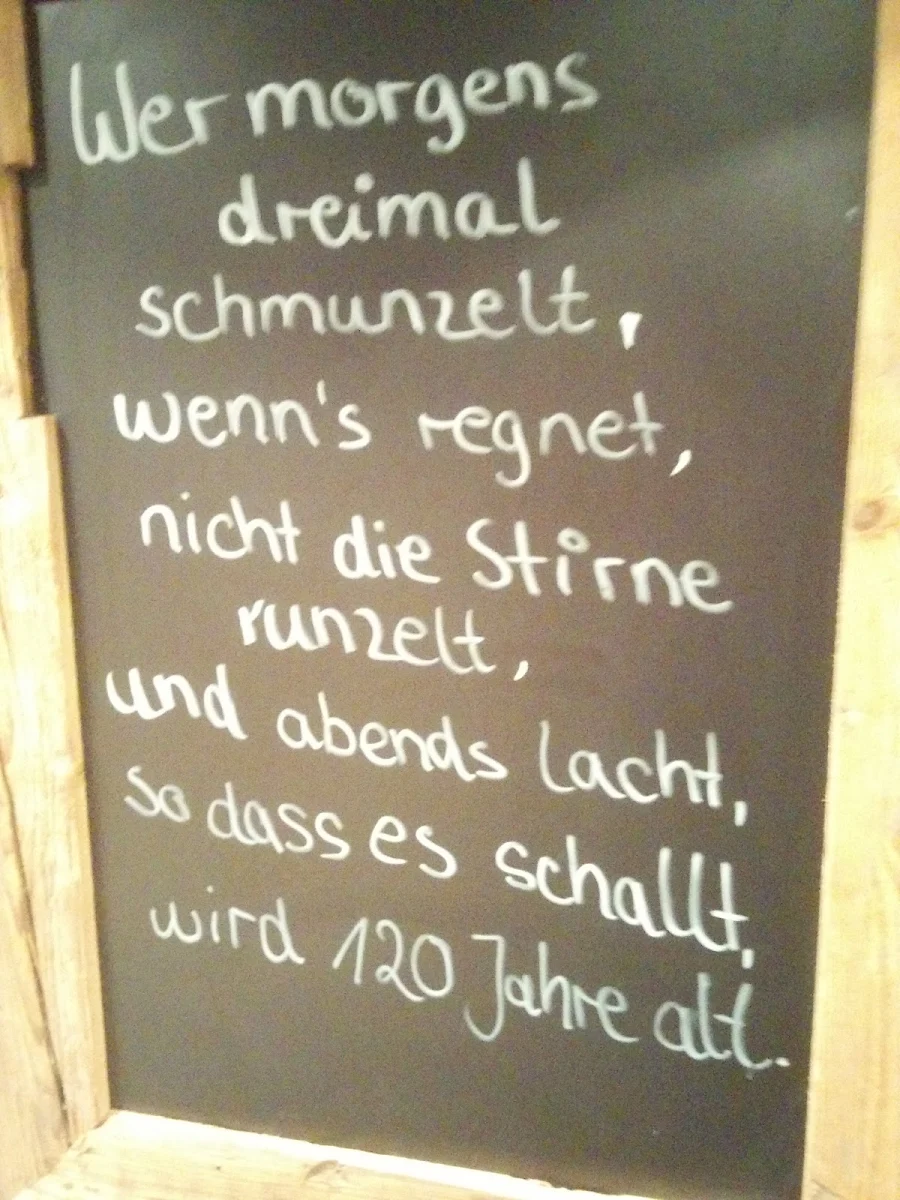 Wer morgens
dreimal
schmunzelt,
wenn's regnet,
nicht die Stirne
runzelt,
und abends lacht,
so dass es schallt,
wird 120 Jahre alt.